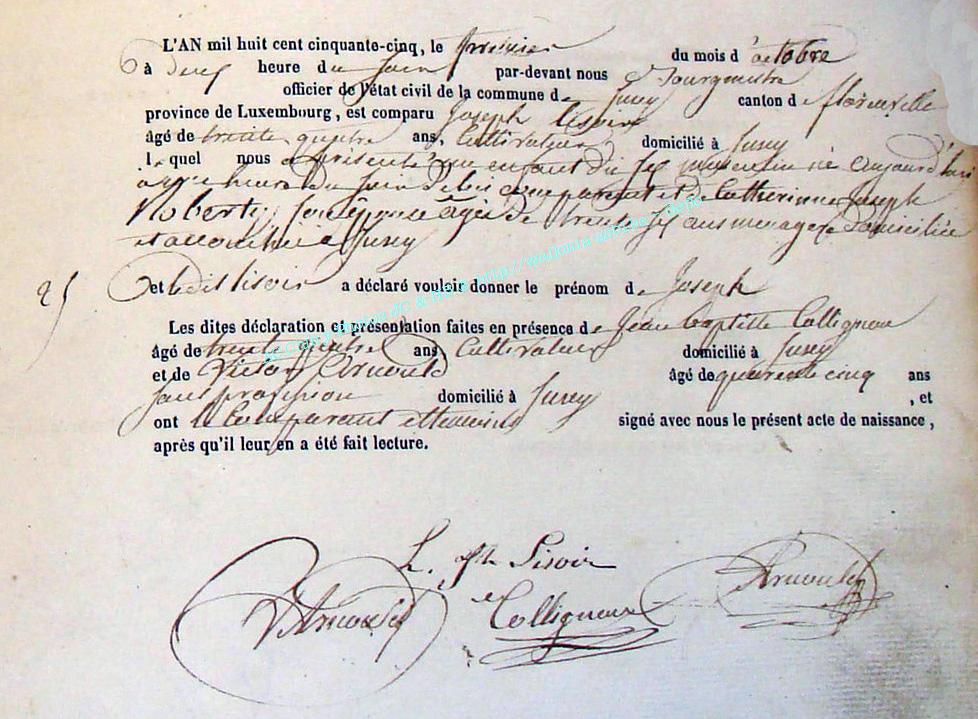 L'AN mil huit cent cinquante-cinq, le premier du mois d'octobre
à deux heure du soir par-devant nous Bourgmestre
officier de l'état civil de la commune de Jusey canton de florenville
province de Luxembourg, est comparu Joseph Lisoir
âgé de trente quatre ans, Cultivateur domicilié à Jusey
lequel nous a présenté un enfant du sexe masculin né aujourd'hui
a heure du soir de lui comparant et de Catherinne Joseph
Roberty son épouse âgée de trente six ans menagere domiciliée
et accouchée a Jusey
25
et ledit Lisoir a déclaré vouloir donner le prénom de Joseph
Les dites déclaration et présentation faites en présence de Jean Baptiste Collignon
âgé de trente quatre ans, Cultivateur domicilié à Jusey
et de Victor Arnould âgé de quarente cinq ans
sans profession domicilié à Jusey , et
ont le Comparant et temoins signé avec nous le présent acte de naissance,
après qu'il leur en a été fait lecture.
L. Jh Lisoir
VArnould Collignon Arnould